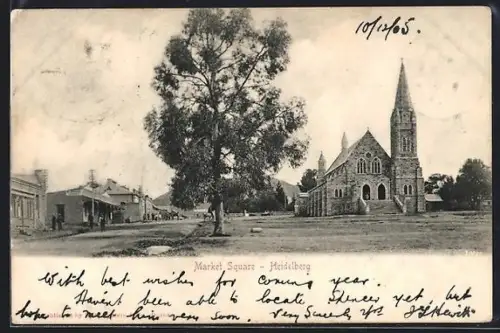 10/12/05.
Market Square - Heidelberg
With best wishes for coming year.
Haven't been able to locate Spencer yet but
hope to meet him very soon. Very Sincerely Yrs